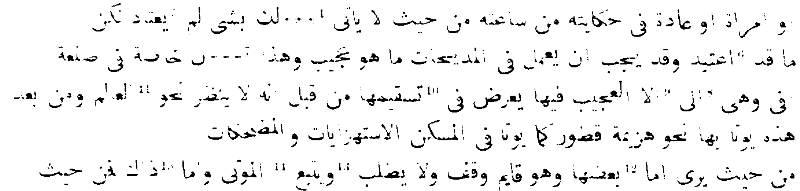 او امراة او عادة فى حكايته من ساعته من حيث لا ياتى بشى لم يعتاد لكن
ما قد اعتيد وقد يجب ان يعمل فى المديحات ما هو عجيب وهذا خاصة فى صنعة
افى وهى الا العجيب فيها يعرض فى تستقيمها من قبل انه لا ينظر نحو العالم ومن بعد
هذه يوتا بها نحو هزيمة قطور كما يوتا فى المسكن الاستهزايات والمضحكات
من حيث يرى اما بعضها وهو قايم وقف ولا يطلب ويتبع الموتى واما ذلك فمن حيث